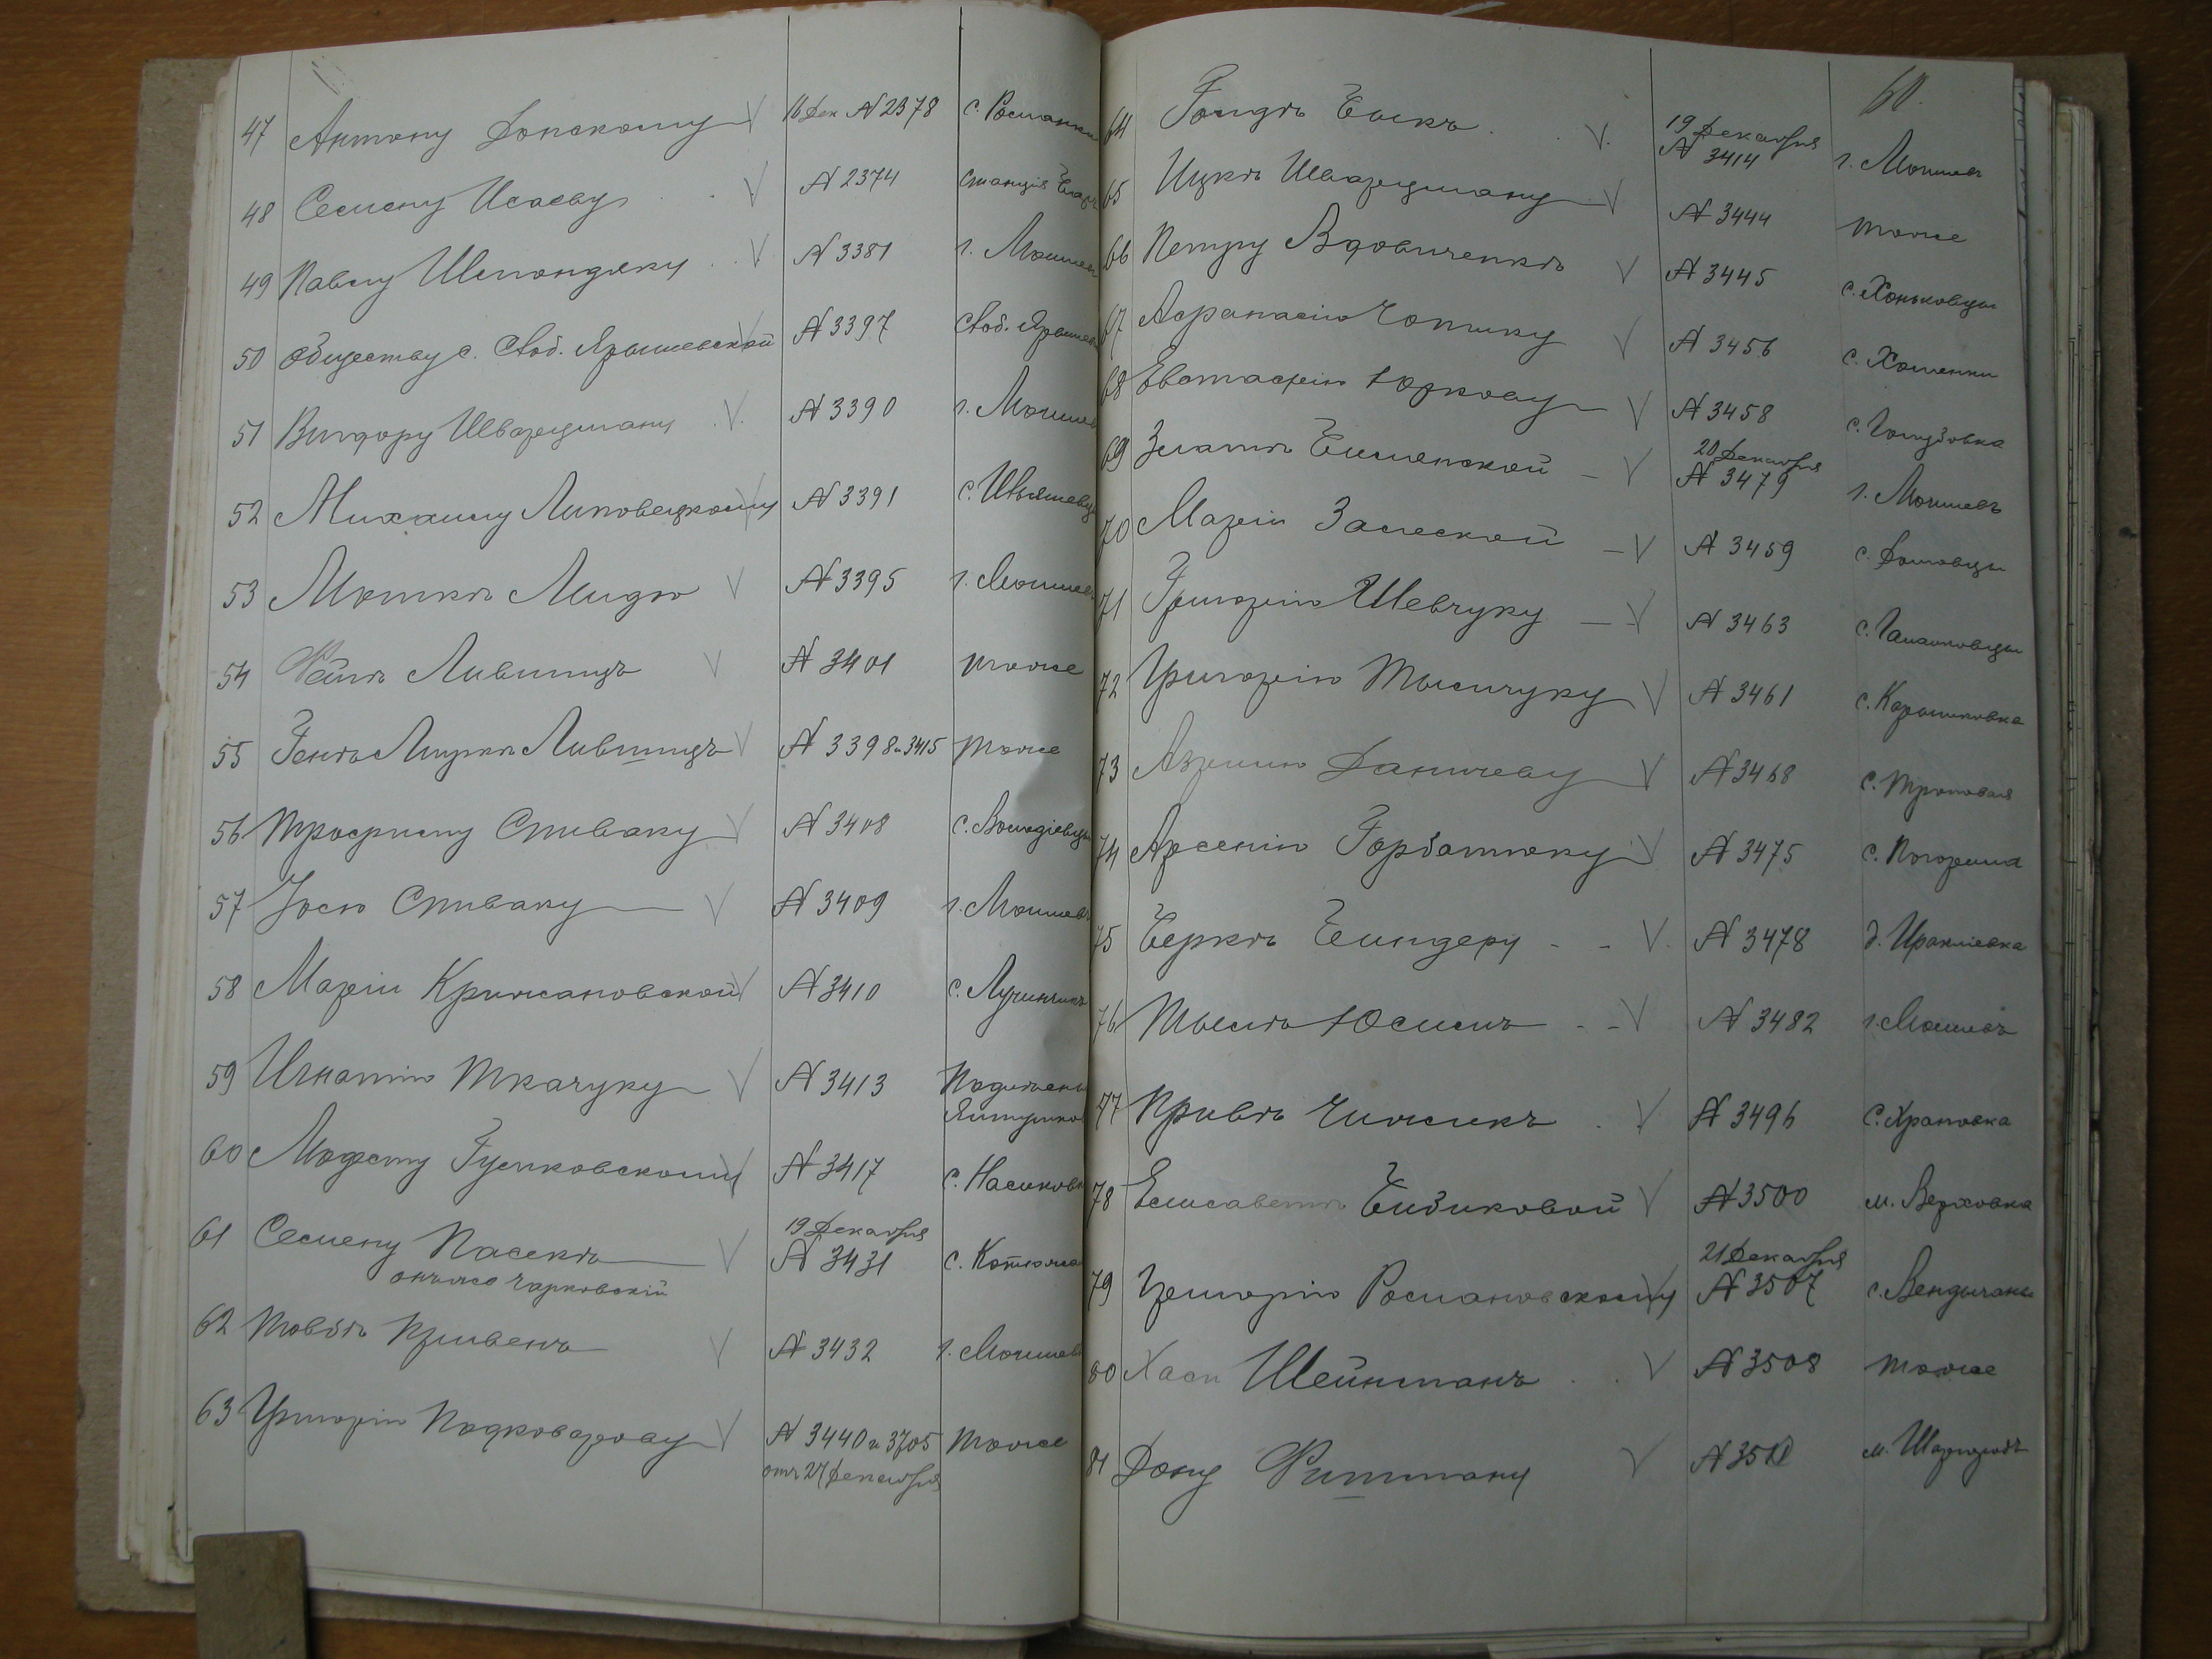 47 Антону Донскому V 16 Дек № 2378 с. Романки
48 Семену Исаеву V № 2374 станція
49 Павлу Шепондяку V № 3381 г. Могилев
50 Обществу с. Слоб. Ярышевской V № 3397 Слоб. Ярышев
51 Вигдору Шварцману V № 3390 г. Могилев
52 Михаилу Липовецкому V № 3391 с. Ивашевцы
53 Мошкѣ Лидю V № 3395 г. Могилев
54 Фейгѣ Лившицъ V № 3401 тоже
55 Генѣ Лившицъ V № 3398 и 3415 тоже
56 Трофиму Спиваку V № 3408 с. Володіевцы
57 Іосю Спиваку V № 3409 г. Могилев
58 Маріи Крижановской V № 3410 с. Лучинчикъ
59 Игнатію Ткачуку V № 3413
60 Модесту Гутковскому V № 3417 с. Насиков
61 Семену Пасекѣ V 19 Декабря № 3431 с. Котюжа
онъ же Чарковскій
62 Товбѣ Кривенъ V № 3432 г. Могилев
63 Григорію Подковарову V № 3440 и 3705 тоже
отъ 27 Декабря
60.
64 Гольдѣ Быкъ V 19 Декабря № 3414 г. Могилев
65 Ицкѣ Шварцману V № 3444 тоже
66 Петру Вдовиченкѣ V № 3445 с. Хоньковцы
67 Афанасію Чопику V № 3456 с. Хоменки
68 Евстафію Юркову V № 3458 с. Голубовка
69 Златѣ V 20 Декабря № 3479 г. Могилевъ
70 Маріи Залеской V № 3459 с.
71 Григорію Шевчуку V № 3463 с. Галайковцы
72 Григорію Тысячуку V № 3461 с. Карышковка
73 Азрилю Даничеву V № 3468 с. Троповая
74 Арсенію Горбатюку V № 3475 с. Погорила
75 Беркѣ Блиндеру V № 3478 д. Ираклиевка
76 Тылѣ Юсимъ V № 3482 г. Могилевъ
77 Привѣ Чижикъ V № 3496 с. Храновка
78 Елисаветѣ Бибиковой V № 3500 м. Верховка
79 Григорію Романовскому V 21 Декабря № 3507 с. Вендычаны
80 Хаси Шейнманъ V № 3508 тоже
81 Дону Фиштману V м. Шаргородъ